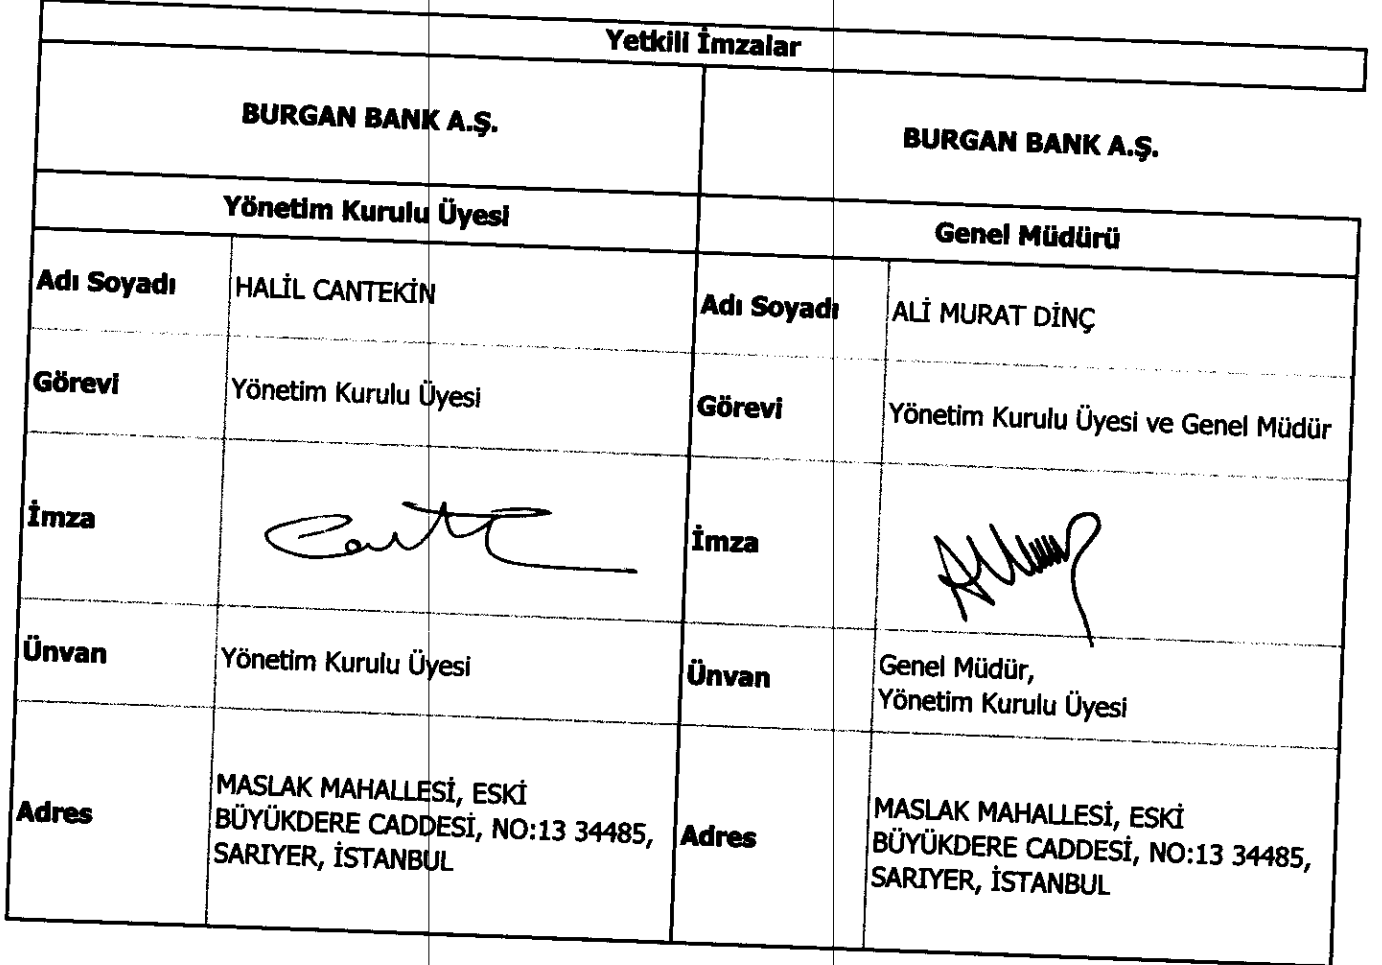 Yetkili İmzalar
BURGAN BANK A.Ş.
BURGAN BANK A.Ş.
Yönetim Kurulu Üyesi
Genel Müdürü
Adı Soyadı HALİL CANTEKİN
Adı Soyadı ALİ MURAT DİNÇ
Görevi Yönetim Kurulu Üyesi
Görevi Yönetim Kurulu Üyesi ve Genel Müdür
İmza
İmza
Ünvan Yönetim Kurulu Üyesi
Ünvan Genel Müdür,
Yönetim Kurulu Üyesi
Adres MASLAK MAHALLESİ, ESKİ
BÜYÜKDERE CADDESİ, NO:13 34485,
SARIYER, İSTANBUL
Adres MASLAK MAHALLESİ, ESKİ
BÜYÜKDERE CADDESİ, NO:13 34485,
SARIYER, İSTANBUL